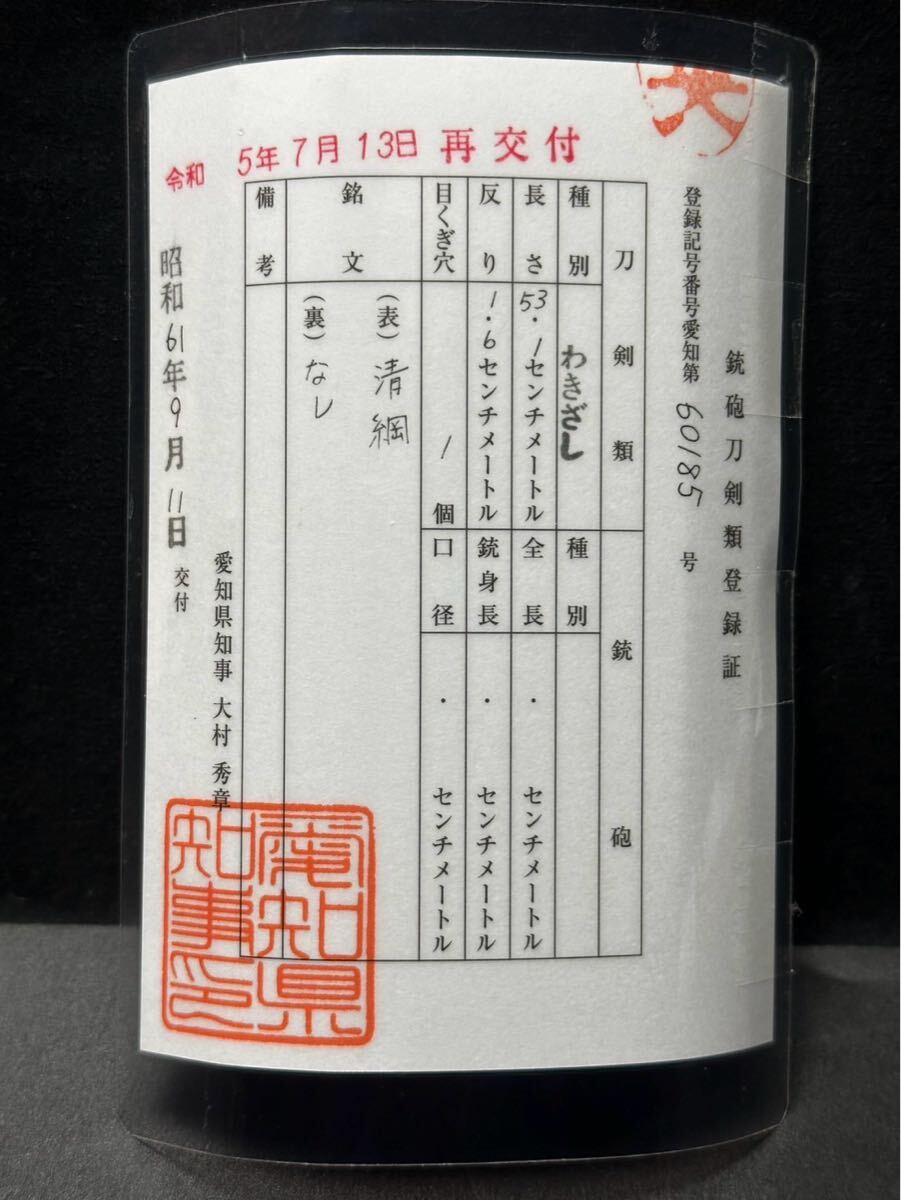 銃砲刀剣類登録証
登録記号番号愛知第60185号
刀剣類 銃砲
種別 わきざし 種別
長さ 53.1センチメートル 全長 ・ センチメートル
反り 1.6センチメートル 銃身長 ・ センチメートル
目くぎ穴 1個 口径 ・ センチメートル
銘文 (表)清綱
(裏)なし
備考
愛知県知事 大村秀章
昭和61年9月11日交付
令和 5年7月13日 再交付
愛知県
知事印